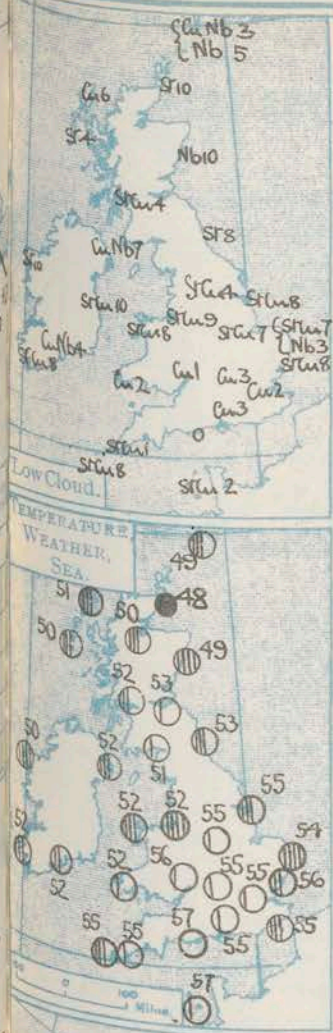 {CuNb 3
{Nb 5
Cu6 St10
St4
Nb10
StCu4
St8
St10 CuNb7
StCu4 StCu8
StCu10 StCu9
StCu8 StCu7 {StCu7
{Nb3
CuNb4 StCu8
StCu8
Cu1 Cu3
Cu2 Cu2
Cu3
0
StCu1
StCu8
StCu 2
Low Cloud.
TEMPERATURE,
WEATHER,
SEA.
49
51 50 48
50
49
52 53
53
50 52
51
55
52 52 52 55
54
52 52 56 55 55 56
55 55 57 55 55
0 100
Miles
57